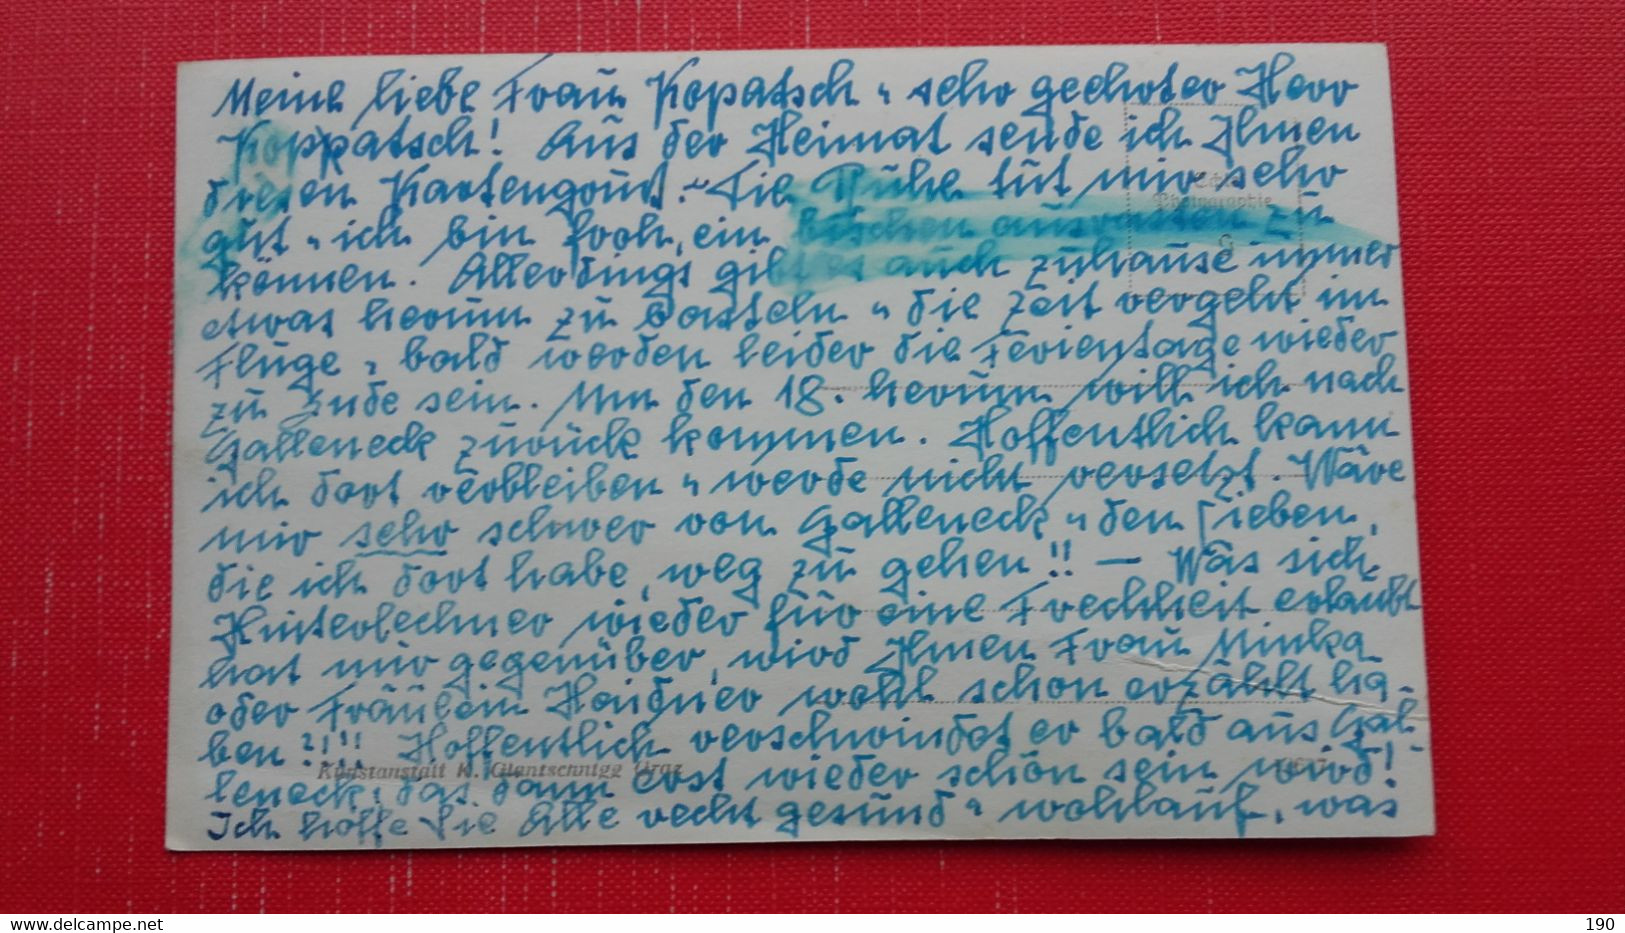 Meine liebe Frau Kopatsch u. sehr geehrter Herr
Koppatsch! Aus der Heimat sende ich Ihnen
diesen Kartengruß. - Die Ruhe tut mir sehr
Echte
Photographie
gut u. ich bin froh, ein bischen ausrasten zu
können. Allerdings gibt es auch zuhause immer
etwas herum zu basteln u. die Zeit vergeht im
Fluge, bald werden leider die Ferientage wieder
zu Ende sein. Um den 18. herum will ich nach
Galleneck zurück kommen. Hoffentlich kann
ich dort verbleiben u. werde nicht versetzt. Wäre
mir sehr schwer von Galleneck u. den Lieben,
die ich dort habe, weg zu gehen!! — Was sich
Hinterlechner wieder für eine Frechheit erlaubt
hat mir gegenüber, wird Ihnen Frau Minka
oder Fräulein Haidner wohl schon erzählt ha-
ben?!!! Hoffentlich verschwindet er bald aus Gal-
Kunstanstalt K. Glantschnigg Graz
leneck, das dann erst wieder schön sein wird!
Ich hoffe Sie Alle recht gesund u. wohlauf, was
delcampe.net
The collector's marketplace
190